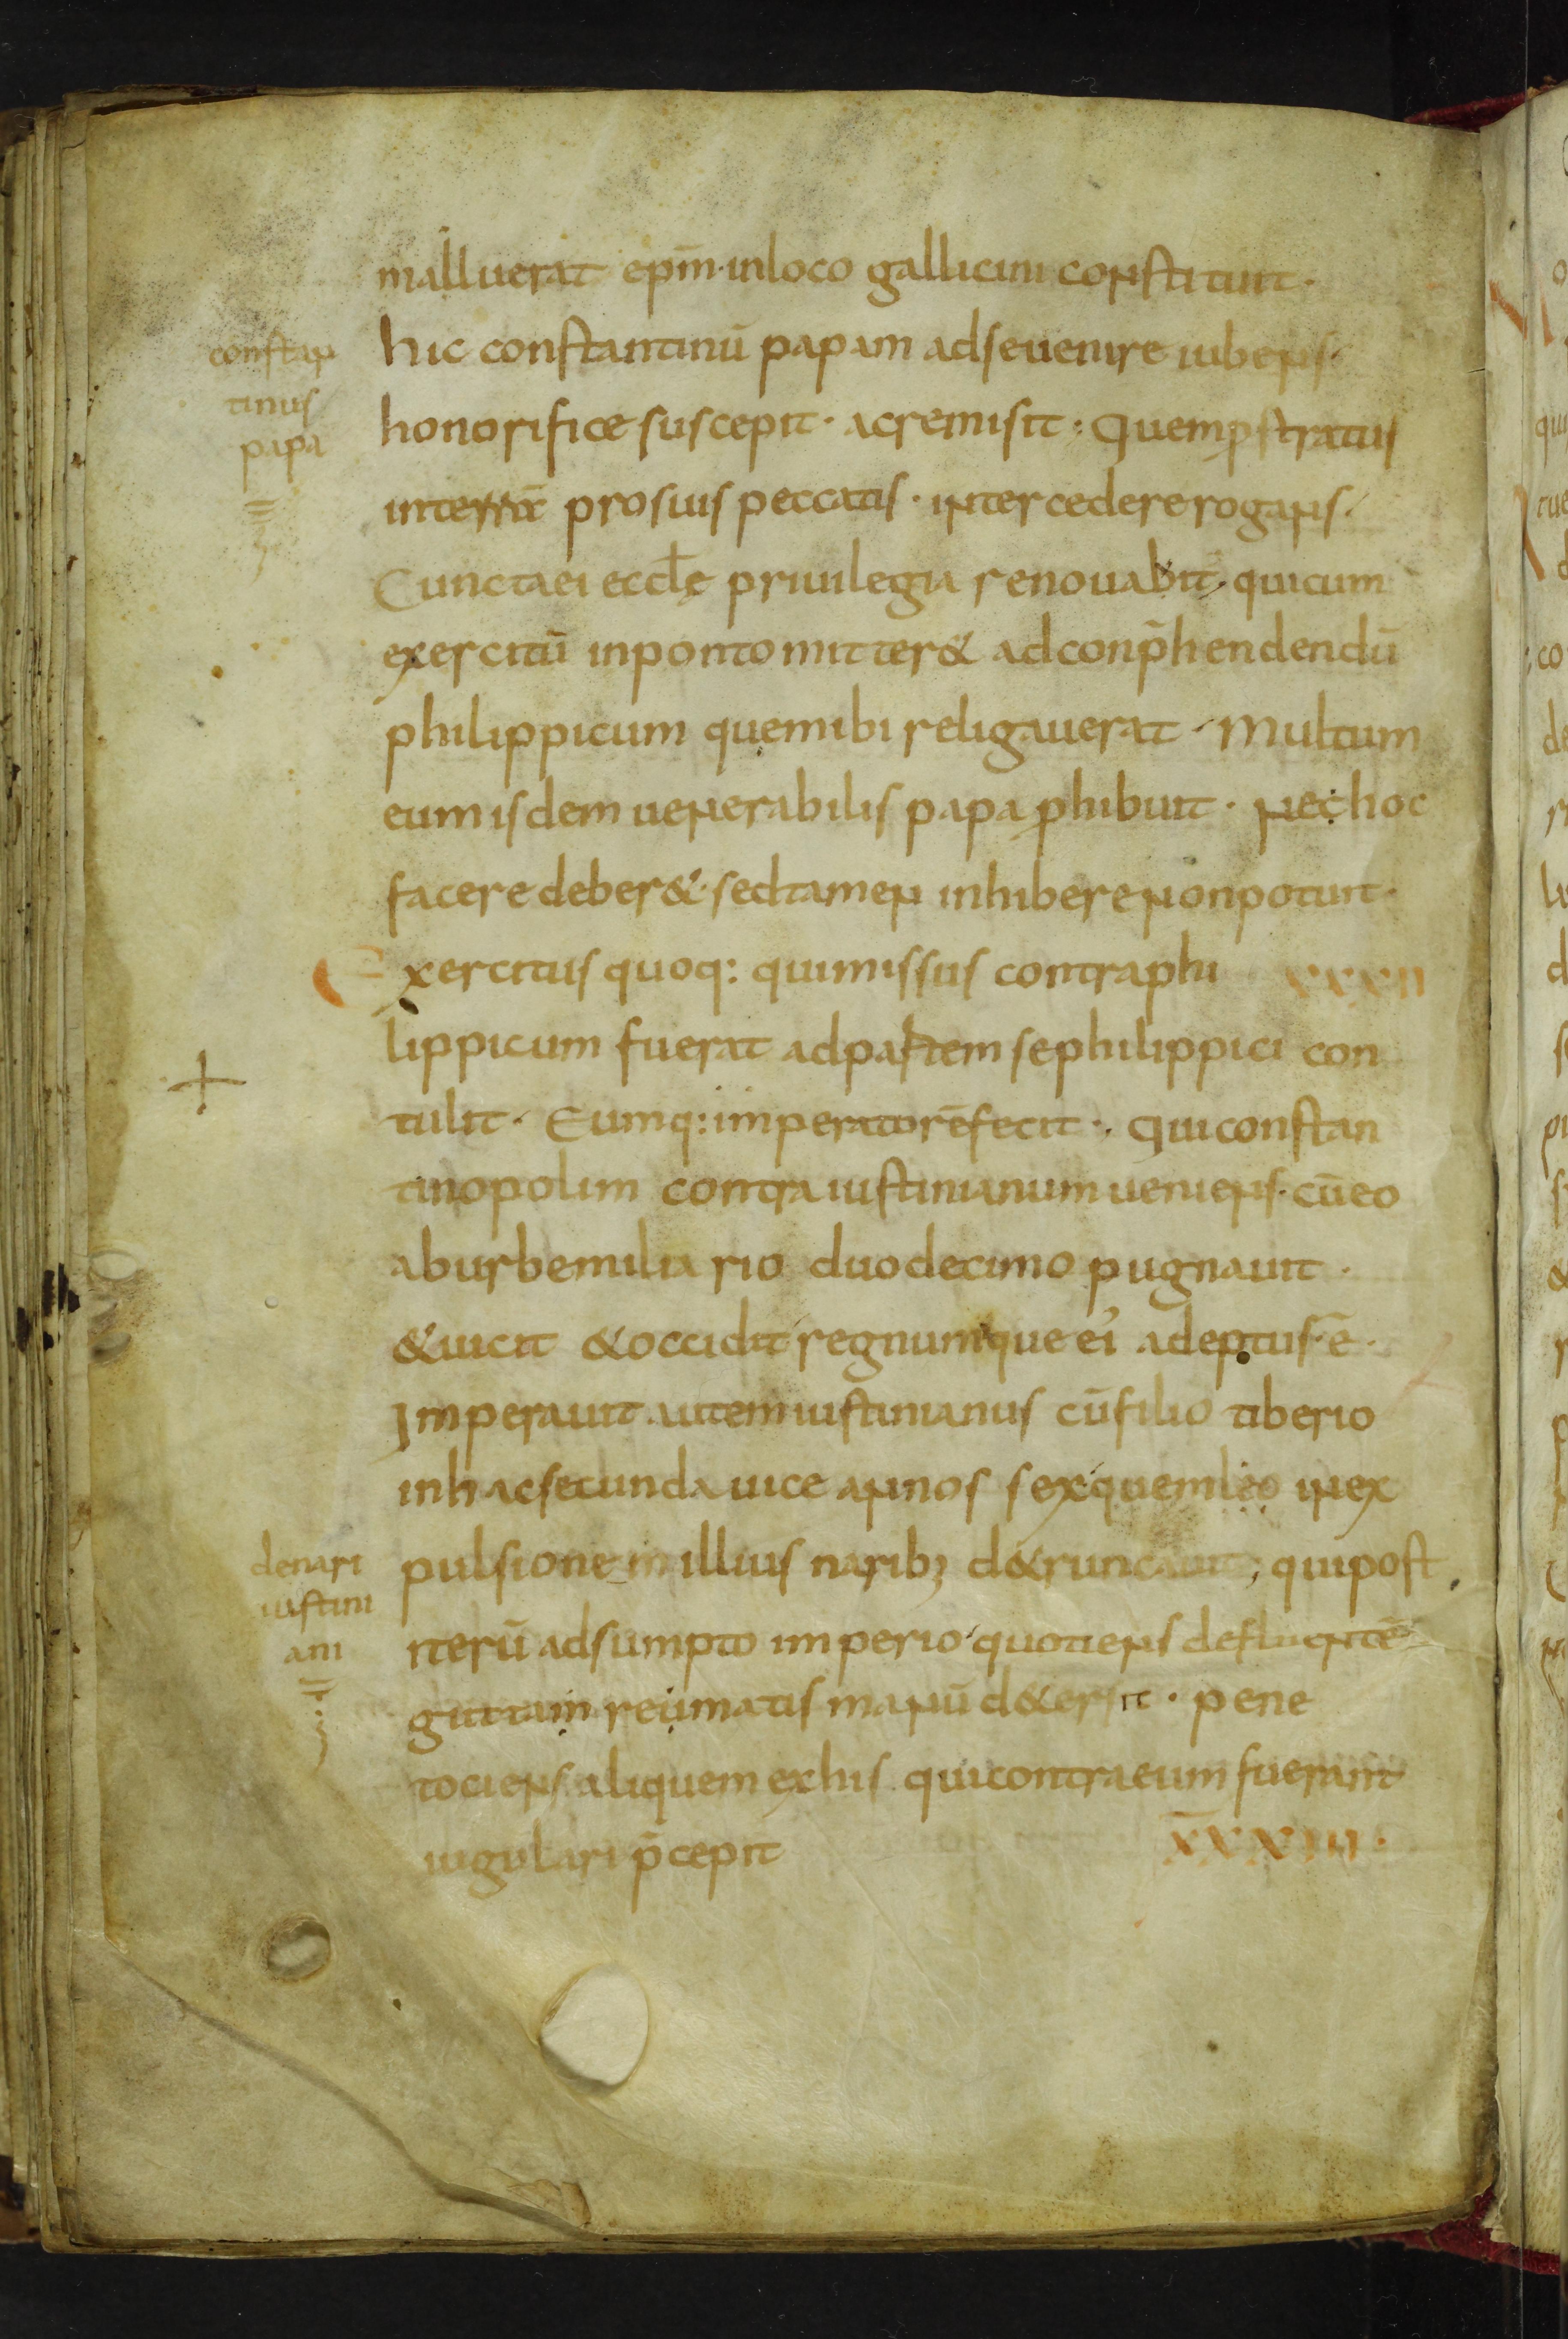 malluerat ep̄m·inloco gallicini constituit·
constan
tinus
papa
hic constantinū papam adseuenire iubens·
honorifice suscepit· acremisit: Quempstratus
interrā prosuis peccatis· intercedererogans·
Cunctaei eccłę priuilegia renouabit, quicum
exercitū inponto mitter& adconp̄hendendū
philippicum quemibi religauerat· Multum
eumisdem uenerabilis papa phibuit· nechoc
facere deber&· sedtamen inhibere nonpotuit·
Exercitus quoq: quimissus contraphi XXXII
lippicum fuerat adpartem sephilippici con
tulit· Eumq: imperatorēfecit·, Quiconstan
tinopolim contra iustinianum ueniens· cūeo
aburbemilia rio duodecimo pugnauit·
&uicit &occidit regnumque ei adeptus·ē·
Imperauit autemiustinianus cūfilio tiberio
inhacsecunda uice annos sex quemleo inex
denari
iustini
ani
pulsione in illius narib; d&runcauit; quipost
iterū adsumpto imperio quotiens defluentē
guttam reumatis manū d&ersit· pene
tociens aliquem exhis quicontraeum fuerant
iugulari p̄cepit XXXIII·